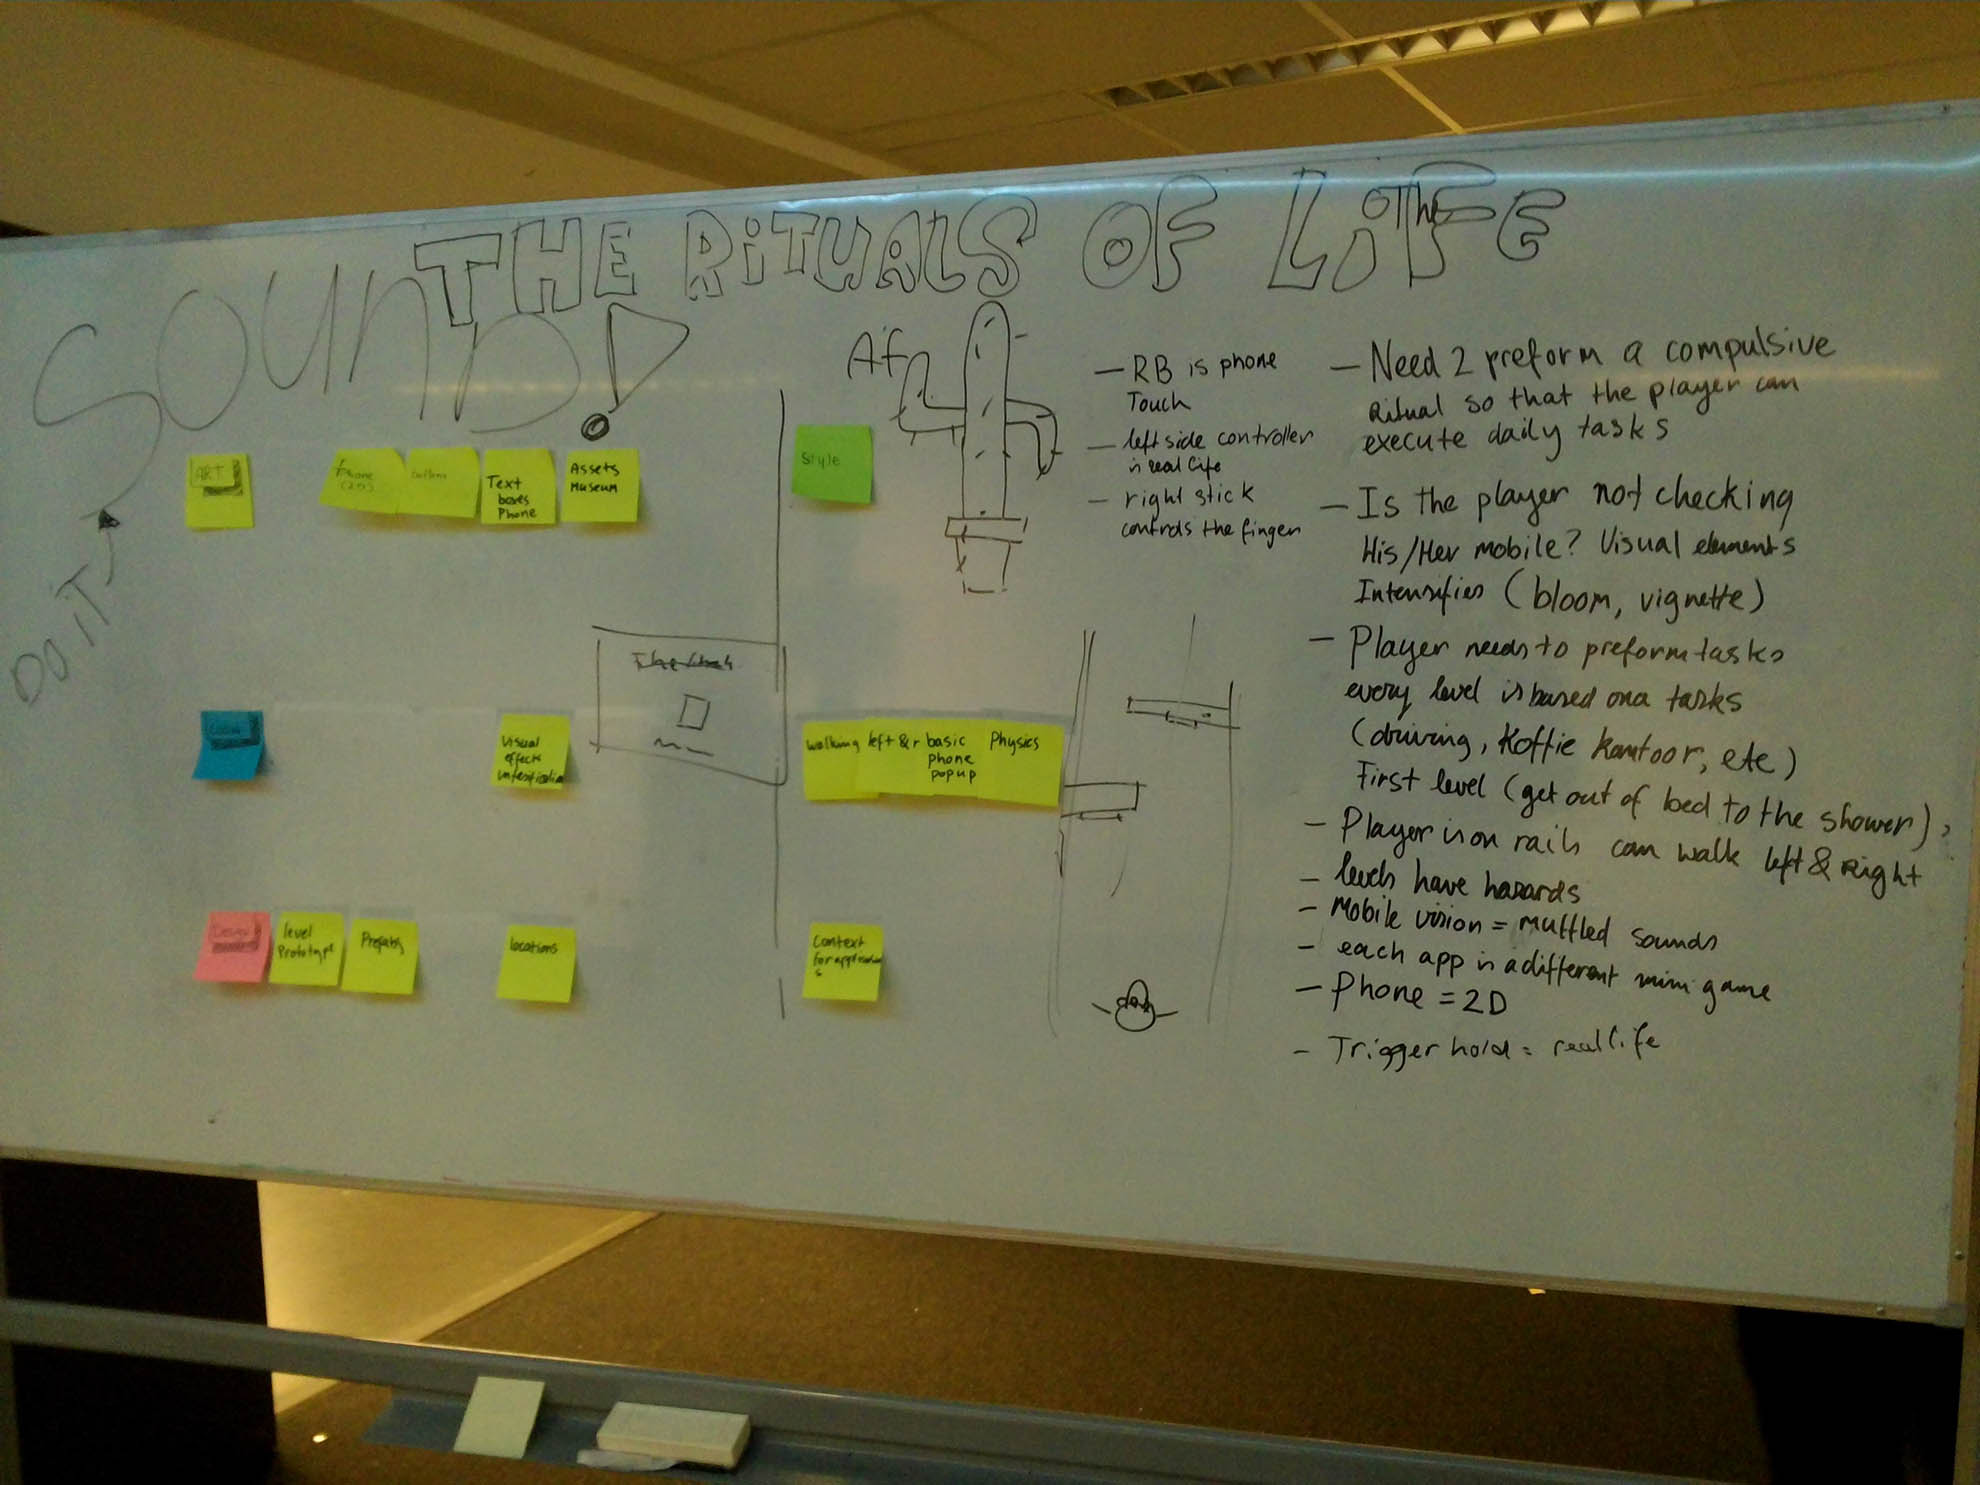 THE RiTUALS OF LiFE
OTh
SOUND!
DO iT
ART
Phone
buttons
Text
boxes
Phone
Assets
Museum
Style
Af
Visual
effects
intensification
walking left & r
basic
phone
popup
Physics
Design
level
Prototype
Prefabs
locations
Context
for application
s
- RB is phone
Touch
- left side controller
is real life
- right stick
controls the finger
- Need 2 preform a compulsive
Ritual so that the player can
execute daily tasks
- Is the player not checking
His/Her mobile? Visual elements
Intensifies (bloom, vignette)
- Player needs to preform tasks
every level is based on a tasks
(driving, Koffie kantoor, etc)
First level (get out of bed to the shower)
- Player is on rails can walk left & Right
- levels have hazards
- Mobile vision = muffled sounds
- each app is a different mini game
- Phone = 2D
- Trigger hold = real life